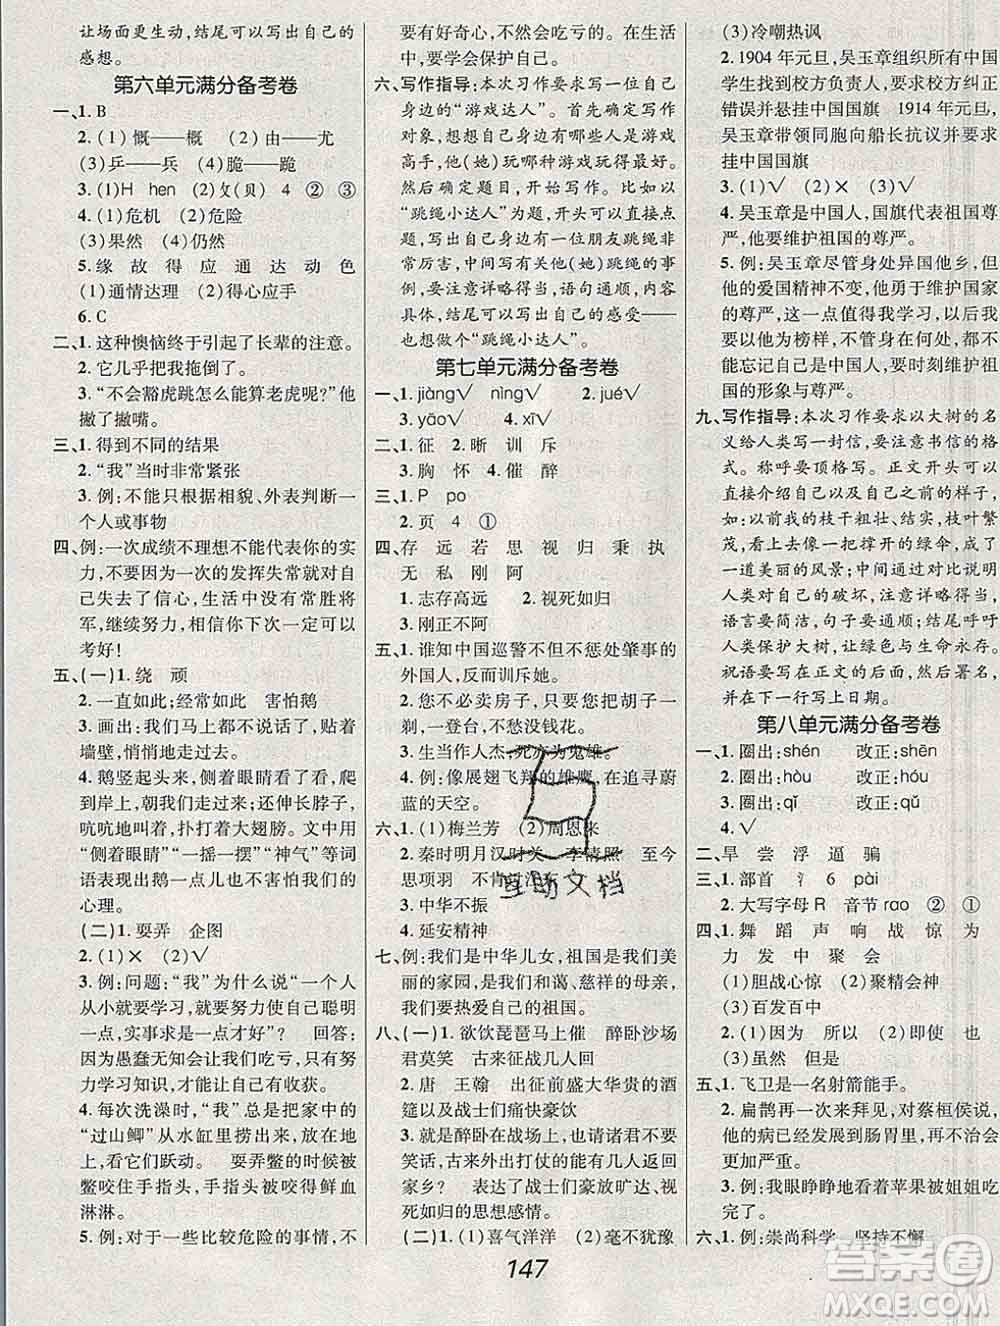 让场面更生动,结尾可以写出自己的
感想。
第六单元满分备考卷
一、1. B
2. (1) 慨——概 (2) 由——尤
(3)乒——兵 (4)脆——跪
3. (1)H hen (2)攵(贝) 4 ② ③
4. (1)危机 (2)危险
(3)果然 (4)仍然
5. 缘 故 得 应 通 达 动 色
(1)通情达理 (2)得心应手
6. C
二、1. 这种懊恼终于引起了长辈的注意。
2. 它几乎把我拖倒了。
3. “不会豁虎跳怎么能算老虎呢?”他
撇了撇嘴。
三、1. 得到不同的结果
2. “我”当时非常紧张
3. 例:不能只根据相貌、外表判断一
个人或事物
四、例:一次成绩不理想不能代表你的实
力,不要因为一次的发挥失常就对自
己失去了信心,没有谁是常胜将
军,继续努力,相信你一定可以
考好!
五、(一)1. 绕 顽
2. 一直如此;经常如此 害怕鹅
3. 画出:我们马上都不说话了,贴着
墙壁,悄悄地走过去。
4. 鹅竖起头来,大摇大摆地走到我们
身边,朝我们身上啄!还伸长脖子,
吭吭地叫着,扑打着大翅膀。文中用
“侧着眼睛”“一摇一摆”“神气”等词
语表现出鹅一点儿也不害怕我们的
心理。
(二)1. 耍弄 企图
2. (1)× (2)√
3. 例:问题:“我”为什么说“一个人
从小就要学习,就要努力使自己聪明
一点,实事求是一点才好”? 回答:因
为愚蠢无知使我们吃亏,所以我们要学
习知识,才能使自己变得更聪明。
4. 每次洗澡时,“我”总是把家中的
“过山鲫”从水缸里捞出来,看着它
们进行跃动。 耍弄鳖时,手指头被
鳖咬住手指头,手指头被咬得鲜血
淋淋。
5. 例:对于一些比较危险的事情,不
要有好奇心,不然会吃亏的。在生活
中,要学会保护自己。
六、写作指导:本次习作要求写一组自己
身边的“游戏达人”。首先确定写作
对象,想想自己身边有哪些人是游戏
高手,他(她)玩哪种游戏玩得最好。
然后确定题目,开始写作。比如以
“跳绳小达人”为题,开头可以直接点
题,写出自己身边的一位朋友跳绳非
常厉害,中间写有关他(她)跳绳的事
例,要注意详略得当,语句通顺,内容
具体,结尾可以写出自己的感受——
也想做个“跳绳小达人”。
第七单元满分备考卷
一、1. jiàng√ nìng√ 2. jué√
3. yāo√ 4. xī√
二、1. 征 2. 晰 训 斥
3. 胸 怀 4. 催 醉
三、1. P po
2. 页 4 ①
四、存 远 若 思 视 归 秉 执
无 私 刚 阿
1. 志存高远 2. 视死如归
3. 刚正不阿
五、1. 谁知中国巡警不但不惩处肇事的
外国人,反而训斥她。
2. 您不必卖房子,只要我给您剃一
剃,一登台,不愁没钱花。
3. 生当作人杰,死亦为鬼雄。
4. 例:像展翅飞翔的雄鹰,在追寻蔚
蓝的天空。
六、1. (1)梅兰芳 (2)周恩来
2. 秦时明月汉时关 李清照 至今
思项羽 不肯过江东
3. 中华不振
4. 延安精神
七、例:我们是中华儿女,祖国是我们美
丽的家园,是温和、慈祥的母亲,
我们要热爱自己的祖国。
八、(一)1. 欲饮琵琶马上催 醉卧沙场
君莫笑 古来征战几人回
2. 唐 王翰 出征前盛大华贵的酒
筵以及战士们痛快豪饮
3. 就是醉卧在战场上,也请诸君不要
笑话,古来上仗打的有几人返回
家乡? 表达了战士们豪放旷达、视
死如归的思想感情。
(二)1. (1)喜气洋洋 (2)毫不犹豫
(3)冷嘲热讽
2. 1904年元旦,吴玉章组织所有中国
学生找到校方负责人,要求校方纠正
错误并悬挂中国国旗 1914年元旦,
吴玉章带领同胞向船长抗议并要求
挂中国国旗
3. (1)√ (2)× (3)√
4. 吴玉章是中国人,国旗代表祖国尊
严,他要维护祖国的尊严。
5. 例:吴玉章尽管身处异国他乡,但他
的爱国精神不变,他勇于维护国家的
尊严,这一点值得我学习。我要以他
为榜样,不管在何处,都不
能忘记自己是中国人,要维护祖
国的形象与尊严。
九、写作指导:本次习作要求以大树的名
义给人类写一封信,要注意书信的格
式。称呼要顶格写。正文开头可以
直接介绍自己之前的样子,比
如:以前我的枝干粗壮、结实,枝叶繁
茂,看上去像一把撑开的绿伞,成了
一道美丽的风景;中间可以写出现在
人类对自己的破坏,注意详略得当,
语言要简洁,句子要通顺;结尾呼吁
人类保护大树,让绿色与生命永存。
祝语要写在正文的后面,然后署名,
并在下一行写上日期。
第八单元满分备考卷
一、1. 圈出:shén 改正:shēn
2. 圈出:hòu 改正:hóu
3. 圈出:qǐ 改正:qǔ
4. √
二、旱 尝 浮 逼 骗
三、1. 部首 氵 6 pài
2. 大写字母R 音节rao ② ①
四、1. 舞 蹈 声 响 战 惊 为
力 发 中 聚 会
(1)胆战心惊 (2)聚精会神
(3)百发百中
2. (1)因为 所以 (2)即使 也
(3)虽然 但是
五、1. 飞卫是一名射箭能手。
2. 扁鹊再一次来拜见,对蔡桓侯说,
他的病已经发展到肠胃里,再不治会
更加严重。
3. 例:我眼睁睁地看着苹果被姐姐吃
完了。
六、1. 例:崇尚科学 坚持不懈
147
互助文档
答案圈
MXQE.COM